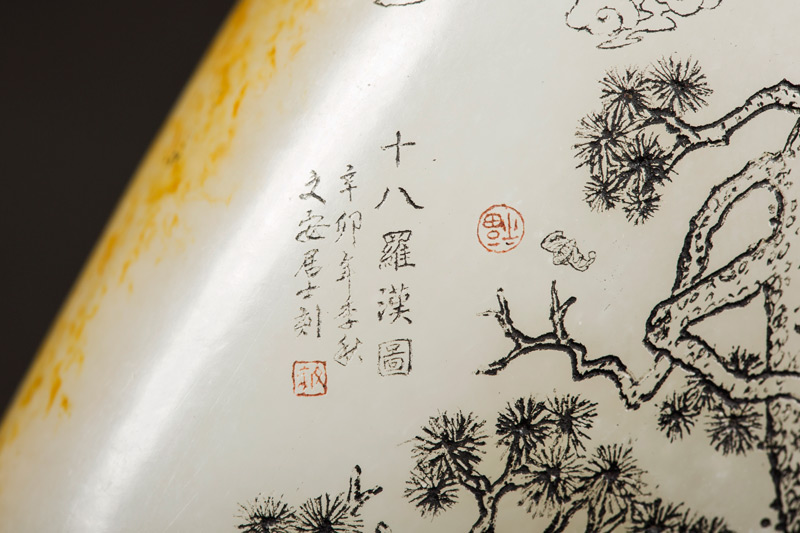 十八羅漢圖
辛卯年季秋
文安居士刻